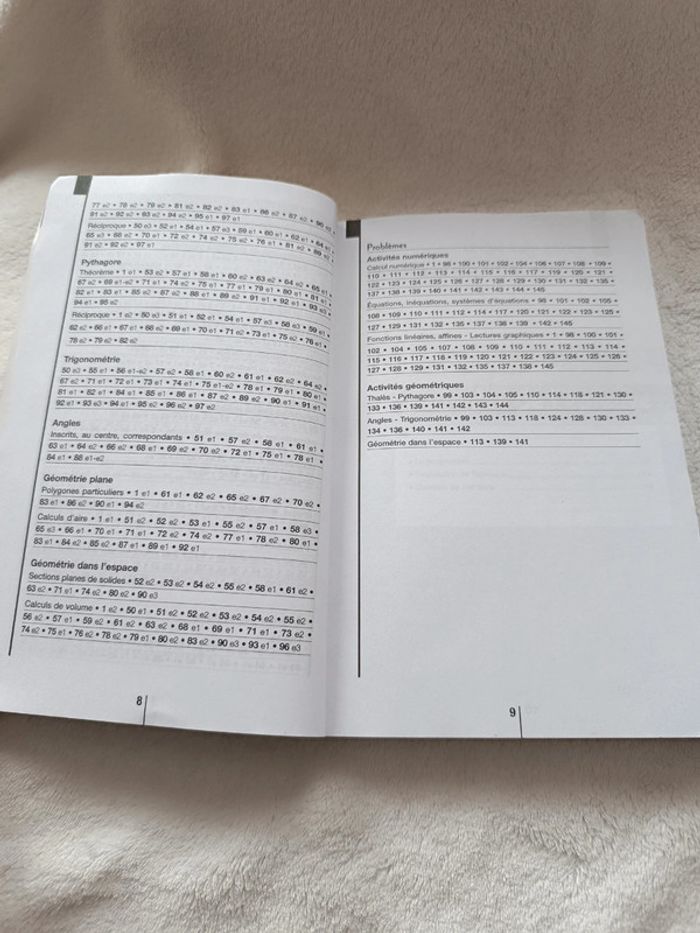 77 e2 • 78 e2 • 79 e2 • 81 e2 • 82 e2 • 83 e1 • 86 e2 • 87 e2 •
91 e2 • 92 e2 • 93 e2 • 94 e2 • 95 e1 • 97 e1
Réciproque • 50 e3 • 52 e1 • 54 e1 • 57 e3 • 59 e1 • 60 e1 • 62 e1 • 64 e1 •
65 e3 • 66 e2 • 70 e1 • 72 e2 • 74 e2 • 75 e2 • 76 e1 • 81 e2 • 89 e2 •
91 e2 • 92 e2 • 97 e1
Pythagore
Théorème • 1 e1 • 53 e2 • 57 e1 • 58 e1 • 60 e2 • 63 e2 • 64 e2 • 65 e1 •
67 e2 • 69 e1-e2 • 71 e1 • 74 e2 • 75 e1 • 77 e1 • 79 e1 • 80 e1 • 81 e1 •
82 e1 • 83 e1 • 85 e2 • 87 e2 • 88 e1 • 89 e2 • 91 e1 • 92 e1 • 93 e3 •
94 e1 • 95 e2
Réciproque • 1 e2 • 50 e3 • 51 e1 • 52 e1 • 54 e1 • 57 e3 • 58 e3 • 59 e1 •
62 e2 • 66 e1 • 67 e1 • 68 e2 • 69 e1 • 70 e1 • 71 e2 • 73 e1 • 75 e2 • 76 e1 •
78 e2 • 79 e2 • 82 e2
Trigonométrie
50 e3 • 55 e1 • 56 e1-e2 • 57 e2 • 58 e1 • 60 e2 • 61 e1 • 62 e2 • 64 e2 •
67 e2 • 71 e1 • 72 e1 • 73 e1 • 74 e1 • 75 e1-e2 • 78 e1 • 79 e1 • 80 e1 •
81 e1 • 82 e1 • 84 e1 • 85 e1 • 86 e1 • 87 e2 • 89 e2 • 90 e1 • 91 e1 •
92 e1 • 93 e3 • 94 e1 • 95 e2 • 96 e2 • 97 e2
Angles
Inscrits, au centre, correspondants • 51 e1 • 57 e2 • 58 e1 • 61 e1 •
63 e1 • 64 e2 • 66 e2 • 68 e1 • 69 e2 • 70 e2 • 72 e1 • 75 e1 • 78 e1 •
84 e1 • 88 e1-e2
Géométrie plane
Polygones particuliers • 1 e1 • 61 e1 • 62 e2 • 65 e2 • 67 e2 • 70 e2 •
83 e1 • 86 e2 • 90 e1 • 94 e2
Calculs d'aire • 1 e1 • 51 e2 • 52 e2 • 53 e1 • 55 e2 • 57 e1 • 58 e3 •
65 e3 • 66 e1 • 70 e1 • 71 e1 • 72 e2 • 74 e2 • 77 e1 • 78 e2 • 80 e1 •
83 e1 • 84 e2 • 85 e2 • 87 e1 • 89 e1 • 92 e1
Géométrie dans l'espace
Sections planes de solides • 52 e2 • 53 e2 • 54 e2 • 55 e2 • 58 e1 • 61 e2 •
63 e2 • 71 e1 • 74 e2 • 80 e2 • 90 e3
Calculs de volume • 1 e2 • 50 e1 • 51 e2 • 52 e2 • 53 e2 • 54 e2 • 55 e2 •
56 e2 • 57 e1 • 59 e2 • 61 e2 • 63 e2 • 68 e1 • 69 e1 • 71 e1 • 73 e2 •
74 e2 • 75 e1 • 76 e2 • 78 e2 • 79 e1 • 80 e2 • 83 e2 • 90 e3 • 93 e1 • 96 e3
8
Problèmes
Activités numériques
Calcul numérique • 1 • 98 • 100 • 101 • 102 • 104 • 106 • 107 • 108 • 109 •
110 • 111 • 112 • 113 • 114 • 115 • 116 • 117 • 119 • 120 • 121 •
122 • 123 • 124 • 125 • 126 • 127 • 128 • 129 • 130 • 131 • 132 • 135 •
137 • 138 • 139 • 140 • 141 • 142 • 143 • 144 • 145
Équations, inéquations, systèmes d'équations • 98 • 101 • 102 • 105 •
108 • 109 • 110 • 111 • 112 • 114 • 117 • 120 • 121 • 122 • 123 • 125 •
127 • 129 • 131 • 132 • 135 • 137 • 138 • 139 • 142 • 145
Fonctions linéaires, affines - Lectures graphiques • 1 • 98 • 100 • 101 •
102 • 104 • 105 • 107 • 108 • 109 • 110 • 111 • 112 • 113 • 114 •
115 • 116 • 117 • 118 • 119 • 120 • 121 • 122 • 123 • 124 • 125 • 126 •
127 • 128 • 129 • 131 • 132 • 135 • 137 • 138 • 145
Activités géométriques
Thalès - Pythagore • 99 • 103 • 104 • 105 • 110 • 114 • 118 • 121 • 130 •
133 • 136 • 139 • 141 • 142 • 143 • 144
Angles - Trigonométrie • 99 • 103 • 113 • 118 • 124 • 128 • 130 • 133 •
134 • 136 • 140 • 141 • 142
Géométrie dans l'espace • 113 • 139 • 141
9